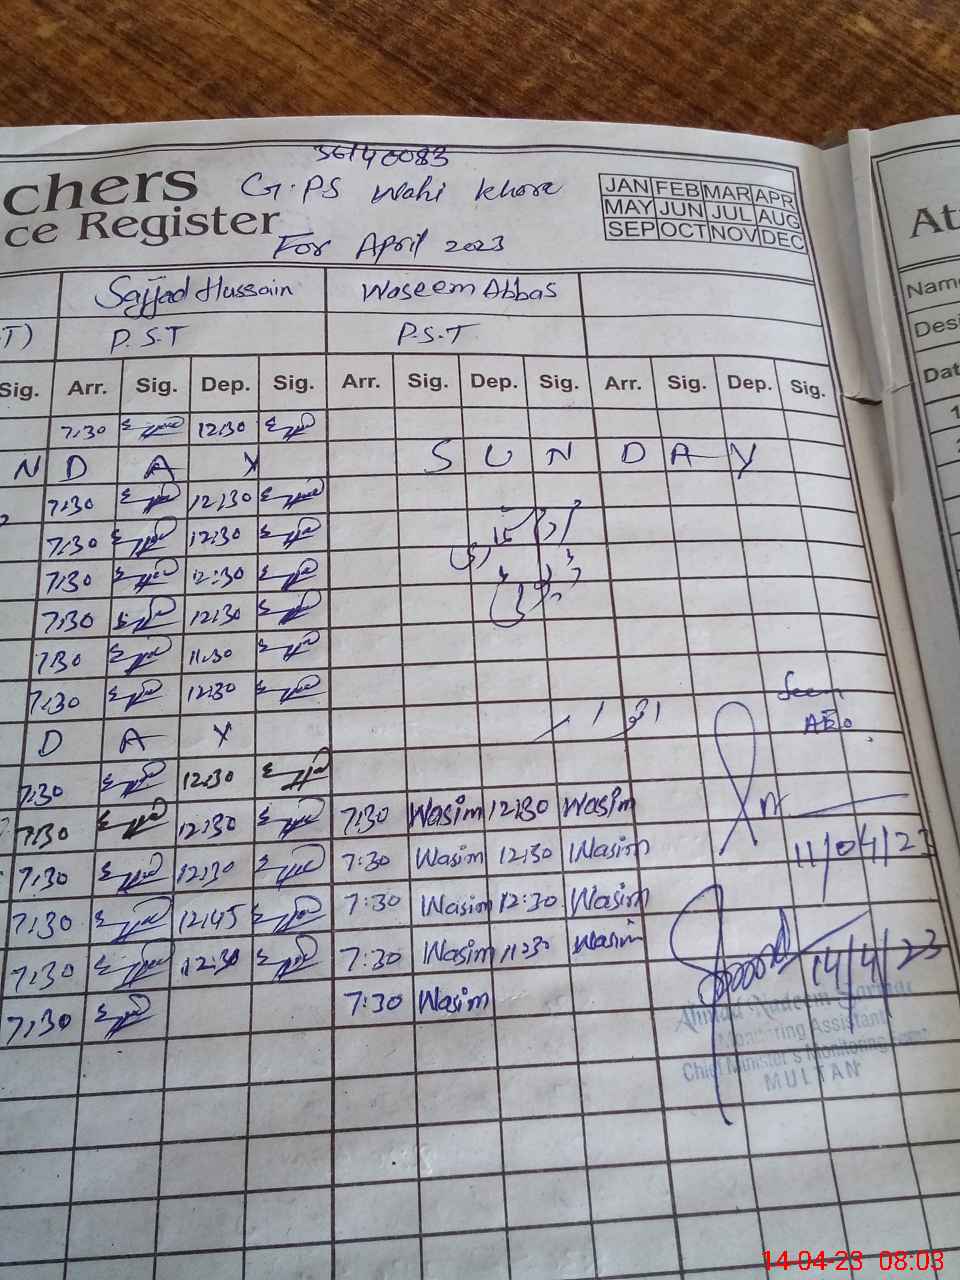 36140083
chers G.PS Wahi Khore JAN FEB MAR APR
ce Register MAY JUN JUL AUG
For April 2023 SEP OCT NOV DEC
At
Sajjad Hussain Waseem Abbas Name
T) P.S.T P.S.T Desi
Sig. Arr. Sig. Dep. Sig. Arr. Sig. Dep. Sig. Arr. Sig. Dep. Sig. Dat
7:30 12:30
N D A Y S U N D A Y
7:30 12:30
7:30 12:30
7:30 12:30
7:30 12:30
7:30 11:30
7:30 12:30 Seen
D A Y AEO.
7:30 12:30
7:30 12:30 7:30 Wasim 12:30 Wasim
7:30 12:30 7:30 Wasim 12:30 Wasim 11/04/23
7:30 12:45 7:30 Wasim 12:30 Wasim
7:30 12:30 7:30 Wasim 11:30 Wasim 14/4/23
7:30 7:30 Wasim
Ahmad Nadeem
Monitoring Assistant
Chief Minister's Monitoring
MULTAN
14-04-23 08:03